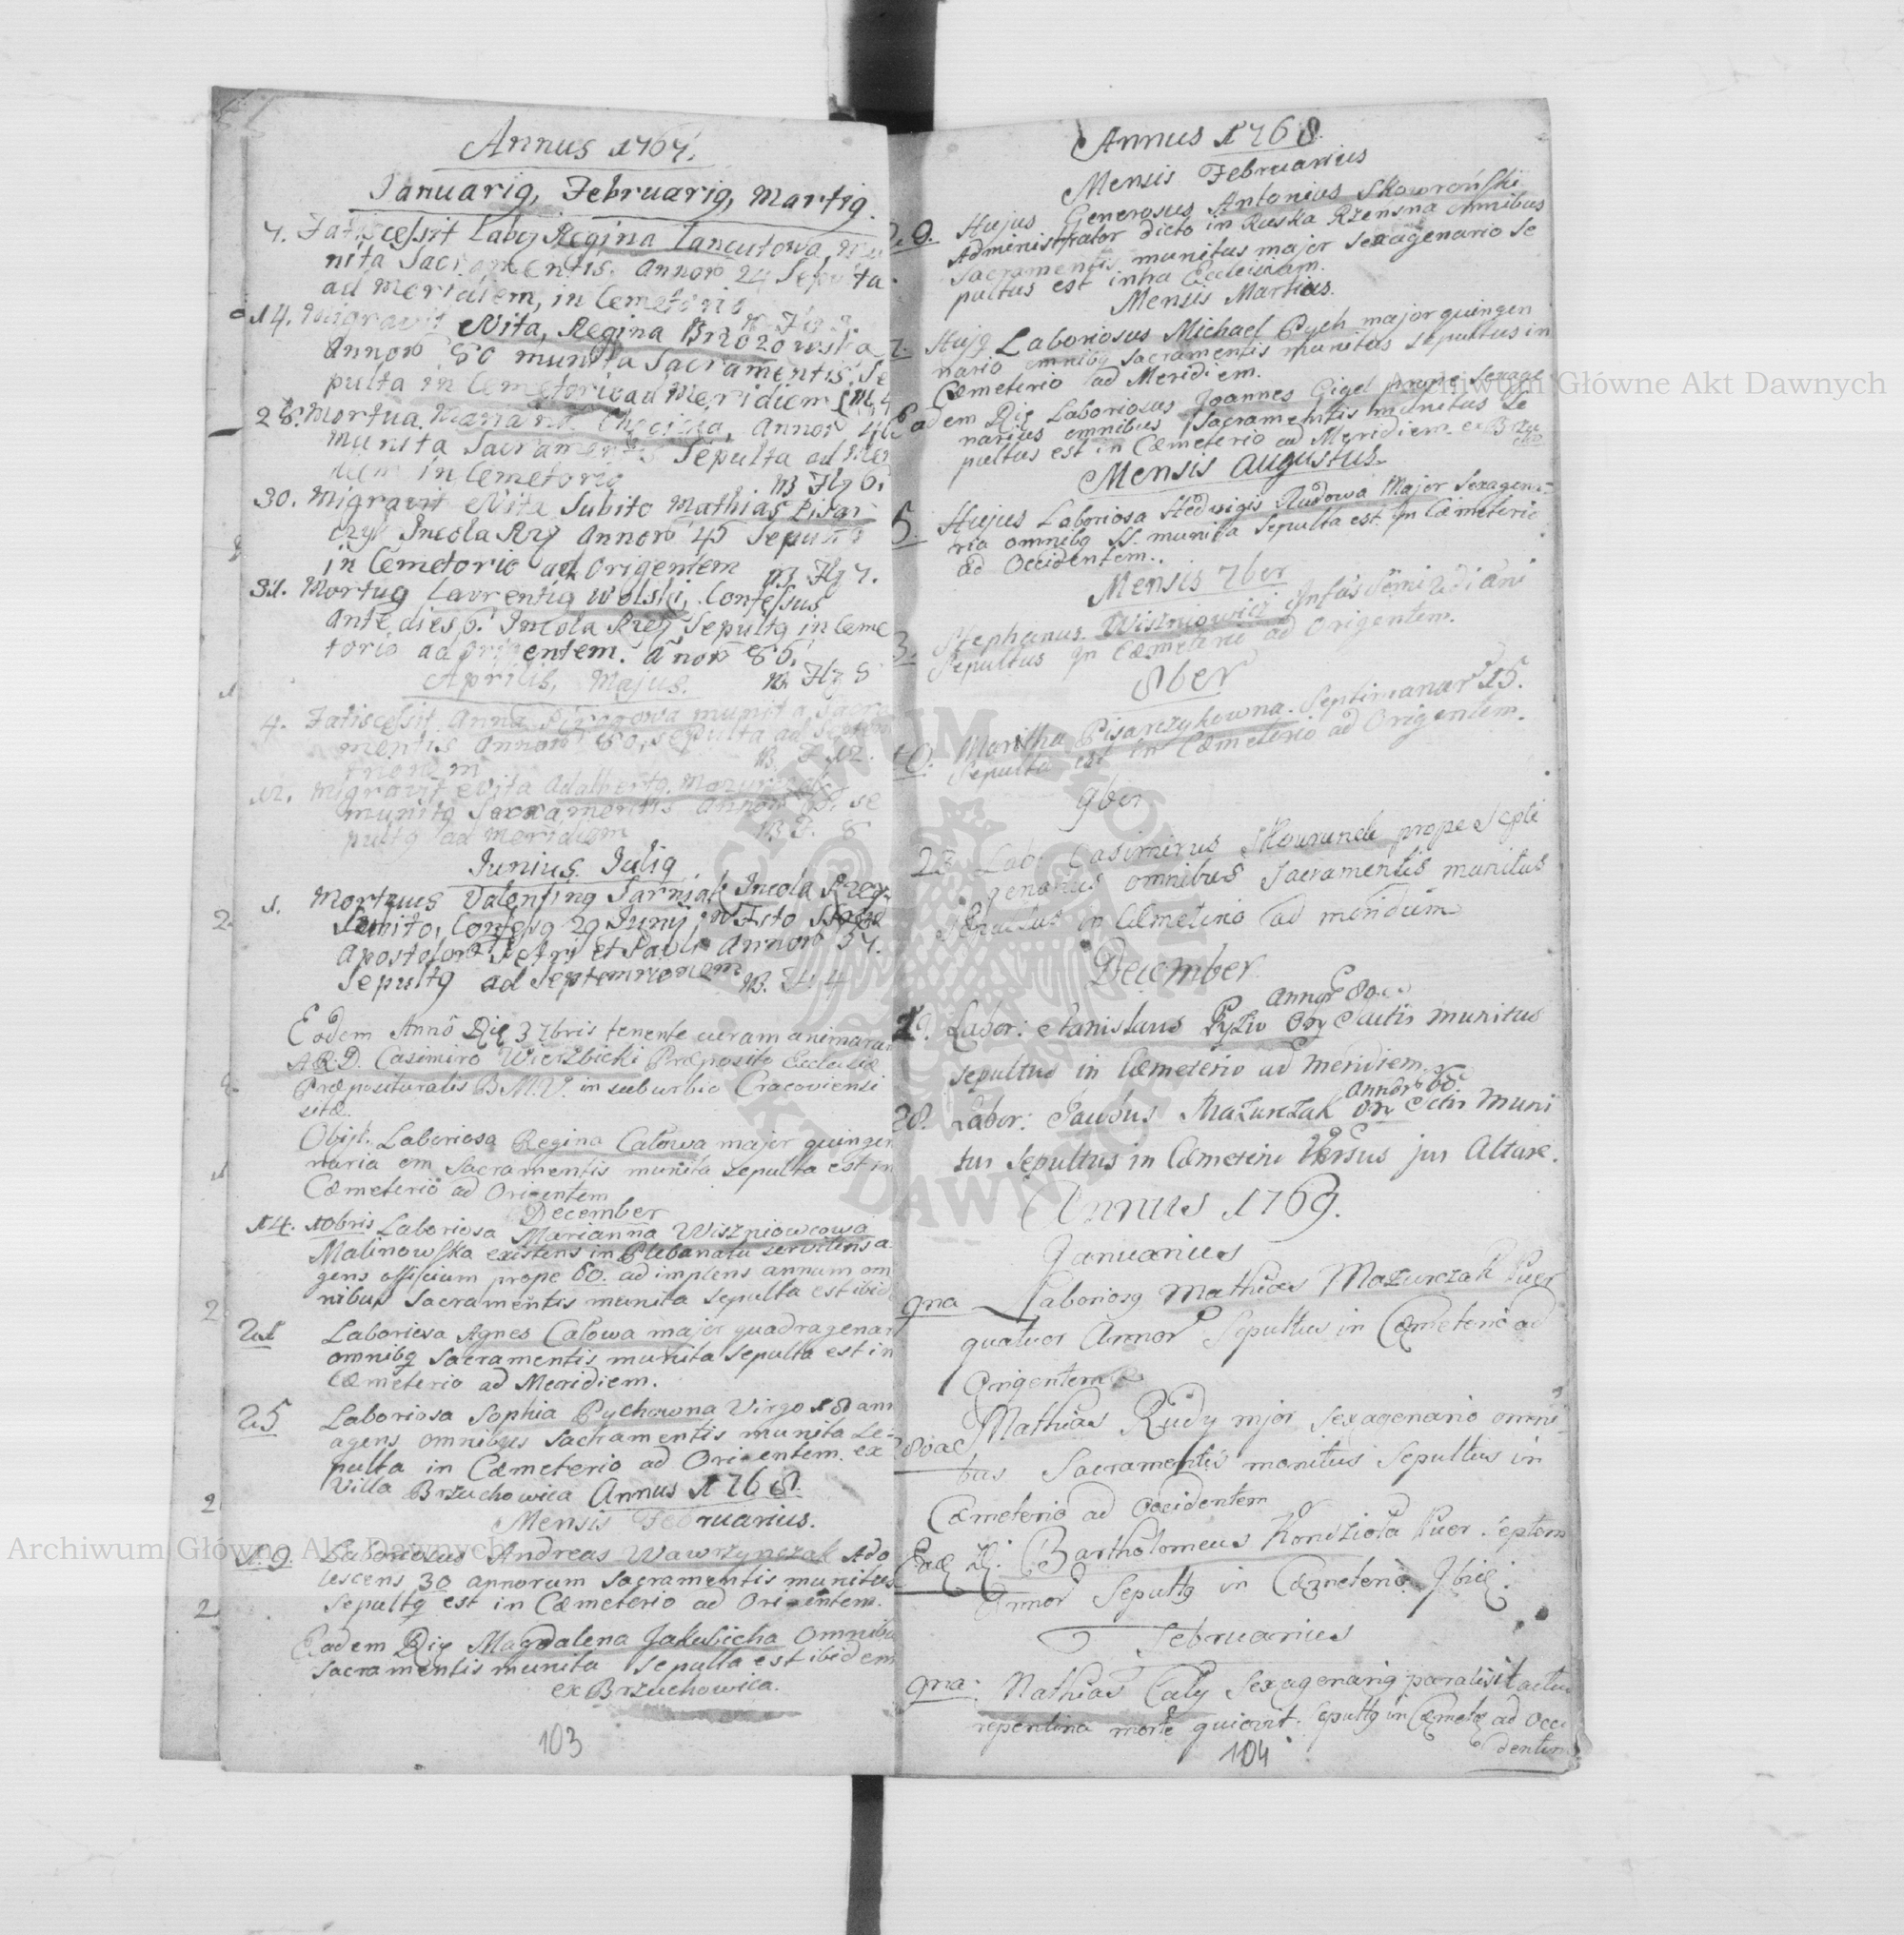 Annus 1767.
Januarig, Februarig, Martig.
7. Fatiscessit Labq Regina Lancutowa, mu
nita Sacramentis. Annor 24 Sepulta
ad Meridiem, in Cemetorio
14. Migravit e Vita, Regina Brzozowska
Annor 80 munita Sacramentis. Se
pulta in Cemetorio ad Meridiem
28. Mortua Marianna annor
munita Sacramentis Sepulta ad Meri
diem in Cemetorio NB Flg 6.
30. Migravit e Vita Subito Mathias Pisar
czyk Incola Rzę Annor 45 Sepultg
in Cemetorio ad Origentem NB Flg 7.
31. Mortug Laurentig Wolski, Confessus
ante dies 6. Incola Rzę Sepultg in Ceme
torio ad Origentem. Annor 86.
NB Flg 8
Aprilis, Majus.
4. Fatiscessit Anna munita Sacra
mentis Annor 80, sepulta ad Septem
trionem NB. F
12. Migravit e Vita Adalbertg Mazurczak
munitg Sacramentis Annor se
pultg ad meridiem NB F. 8
Junius. Julig
1. Mortuus Valenting Tarniak Incola Rzę
Subito, Confessg 29 Junij, in Festo SS
Apostolor Petri et Pauli Annor 57.
Sepultg ad Septemtrionem NB. F. 4
Eodem Anno Die 3 7bris tenente curam animarum
A.R.D. Casimiro Wierzbicki Præposito Ecclesiæ
Præposituralis B.M.V. in suburbio Cracoviensi
sitæ.
Obijt. Laboriosa Regina Całowa major quingen
naria om Sacramentis munita sepulta est in
Cæmeterio ad Orientem
December
14. 10bris Laboriosa Marianna Wiszniowcowa
Malinowska existens in Plebanatu servilem a
gens officium prope 60. adimplens annum om
nibus Sacramentis munita sepulta est ibid
21 Laboriosa Agnes Całowa major quadragenar
omnibq Sacramentis munita Sepulta est in
Cæmeterio ad Meridiem.
25 Laboriosa Sophia Pychowna Virgo 18 ann
agens omnibus Sacramentis munita Se-
pulta in Cæmeterio ad Orientem. ex
Villa Brzuchowica Annus 1768.
Mensis Februarius.
9. Laboriosus Andreas Wawrzynczak Ado
lescens 30 annorum Sacramentis munitus
Sepultq est in Cæmeterio ad Orientem.
Eadem Die Magdalena Jakubicha Omnibu
Sacramentis munita Sepulta est ibidem
ex Brzuchowica.
103
Annus 1768.
Mensis Februarius
9. Hujus Generosus Antonius Skowroński
Administrator dicto in Ruska Rzęsna omnibus
Sacramentis munitus major sexagenario Se
pultus est intra Ecclesiam.
Mensis Martius.
7. Hujq Laboriosus Michael Pych major quingen
nario omnibq Sacramentis munitus sepultus in
Cæmeterio ad Meridiem.
Eadem Die Laboriosus Joannes Gigel prope Sexage
narius omnibus Sacramentis munitus Se
pultus est in Cæmeterio ad Meridiem. ex Brzu
Mensis Augustus.
5. Hujus Laboriosa Hedvigis Rudowa Major Sexagena
ria omnibq SS. munita Sepulta est. In Cæmeterio
ad Occidentem.
Mensis 7ber
3. Stephanus. Wiszniowicz Infas Semi
Sepultus In Cæmeterio ad Origentem.
8ber
10. Maritha Pisarczykowna. Septimanar 15.
Sepulta est in Cæmeterio ad Origentem.
9ber
23 Lab: Casimirus prope Septi
genarius omnibus Sacramentis munitus
sepultus in Cæmeterio ad meridiem
December
annor 80.
19. Labor: Stanislaus Pyzio Ong Sactis munitus
sepultus in Cæmeterio ad Meridiem.
Annor 60.
28. Labor: Jacobus Mazurczak Om Sctis Muni
tus Sepultus in Cæmeterio Versus jus Altare.
Annus 1769.
Januarius
9na Laboriosg Mathias Mazurczak Puer
quatuor Annor Sepultus in Cæmeterio ad
Origentem
Mathias Rudy major Sexagenario omni
bus Sacramentis munitus Sepultus in
Cæmeterio ad Occidentem
Bartholomeus Kondzioła Puer Septem
Annor Sepultg in Cæmeterio Ibid.
Februarius
9na. Mathias Cały Sexagenarig paralisi tactus
repentina morte quievit. Sepultg in Cæmete ad Occi
dentem
104
Archiwum Główne Akt Dawnych
Archiwum Główne Akt Dawnych
ARCHIWUM GŁÓWNE AKT DAWNYCH